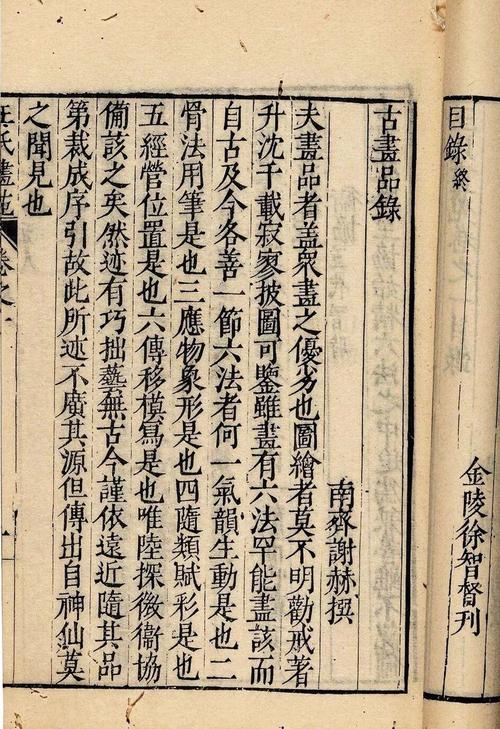 目錄終
金陵徐智督刊
古畫品錄
南齊謝赫撰
夫畫品者蓋衆畫之優劣也圖繪者莫不明勸戒著
升沈千載寂寥披圖可鑒雖畫有六法罕能盡該而
自古及今各善一節六法者何一氣韻生動是也二
骨法用筆是也三應物象形是也四隨類賦彩是也
五經營位置是也六傳移模寫是也唯陸探微衞協
備該之矣然迹有巧拙藝無古今謹依遠近隨其品
第裁成序引故此所述不廣其源但傳出自神仙莫
之聞見也
王氏畫苑 卷之一